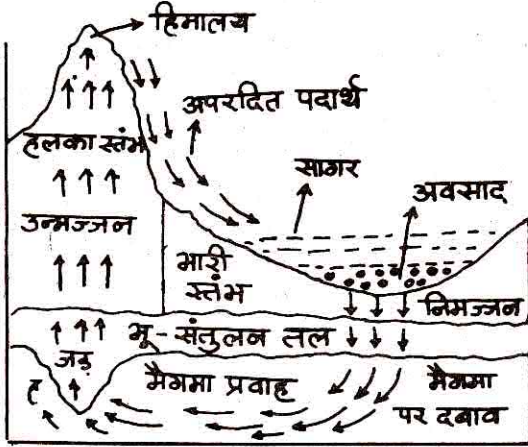 हिमालय
अपरदित पदार्थ
हलका स्तंभ
सागर
अवसाद
उन्मज्जन
भारी
स्तंभ
निमज्जन
भू-संतुलन तल
जड़
मैगमा प्रवाह
मैगमा
पर दबाव